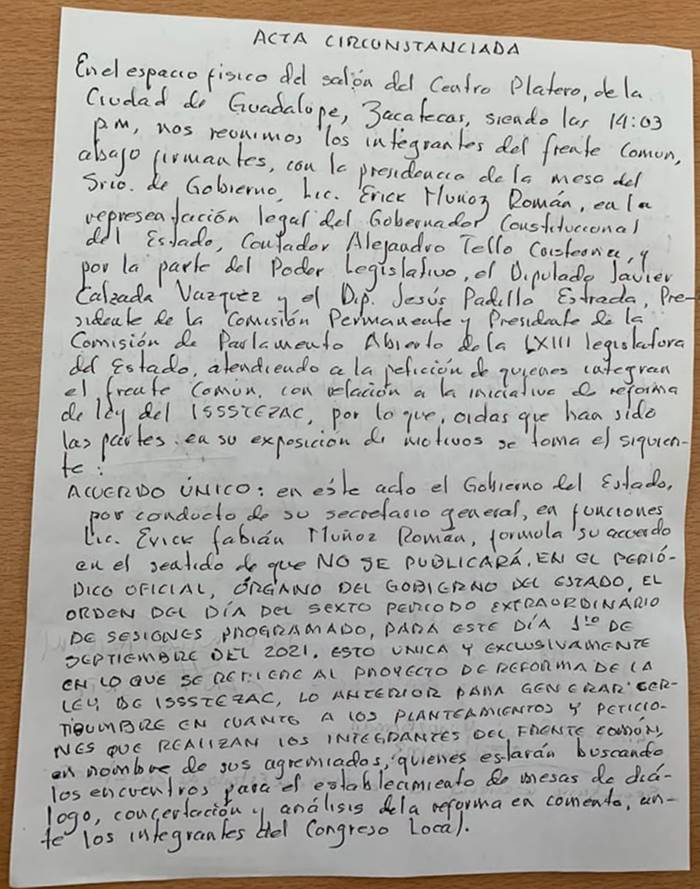 ACTA CIRCUNSTANCIADA
En el espacio físico del salón del Centro Platero, de la
Ciudad de Guadalupe, Zacatecas, siendo las 14:03
p.m, nos reunimos los integrantes del frente común,
abajo firmantes, con la presidencia de la mesa del
Srio. de Gobierno, Lic. Erick Muñoz Román, en la
representación legal del Gobernador Constitucional
del Estado, Contador Alejandro Tello
por la parte del Poder Legislativo, el Diputado Javier
Calzada Vazquez y el Dip. Jesús Padilla Estrada, Pre-
sidente de la Comisión Permanente y Presidente de la
Comisión de Parlamento Abierto de la LXIII legislatura
del Estado, atendiendo a la petición de quienes integran
el frente común, con relación a la iniciativa de reforma
de ley del ISSSTEZAC, por lo que, oidas que han sido
las partes en su exposición de motivos se toma el siguien-
te:
ACUERDO ÚNICO: en este acto el Gobierno del Estado,
por conducto de su secretario general, en funciones
Lic. Erick Fabián Muñoz Román, formula su acuerdo
en el sentido de que NO SE PUBLICARÁ, EN EL PERIÓ-
DICO OFICIAL, ÓRGANO DEL GOBIERNO DEL ESTADO, EL
ORDEN DEL DÍA DEL SEXTO PERIODO EXTRAORDINARIO
DE SESIONES PROGRAMADO, PARA ESTE DÍA 1ro DE
SEPTIEMBRE DEL 2021. ESTO UNICA Y EXCLUSIVAMENTE
EN LO QUE SE REFIERE AL PROYECTO DE REFORMA DE LA
LEY DE ISSSTEZAC, LO ANTERIOR PARA GENERAR CER-
TIDUMBRE EN CUANTO A LOS PLANTEAMIENTOS Y PETICIO-
NES QUE REALIZAN LOS INTEGRANTES DEL FRENTE COMÚN,
en nombre de sus agremiados, quienes estarán buscando
los encuentros para el establecimiento de mesas de diá-
logo, concertación y análisis de la reforma en comento, an-
te los integrantes del Congreso Local.